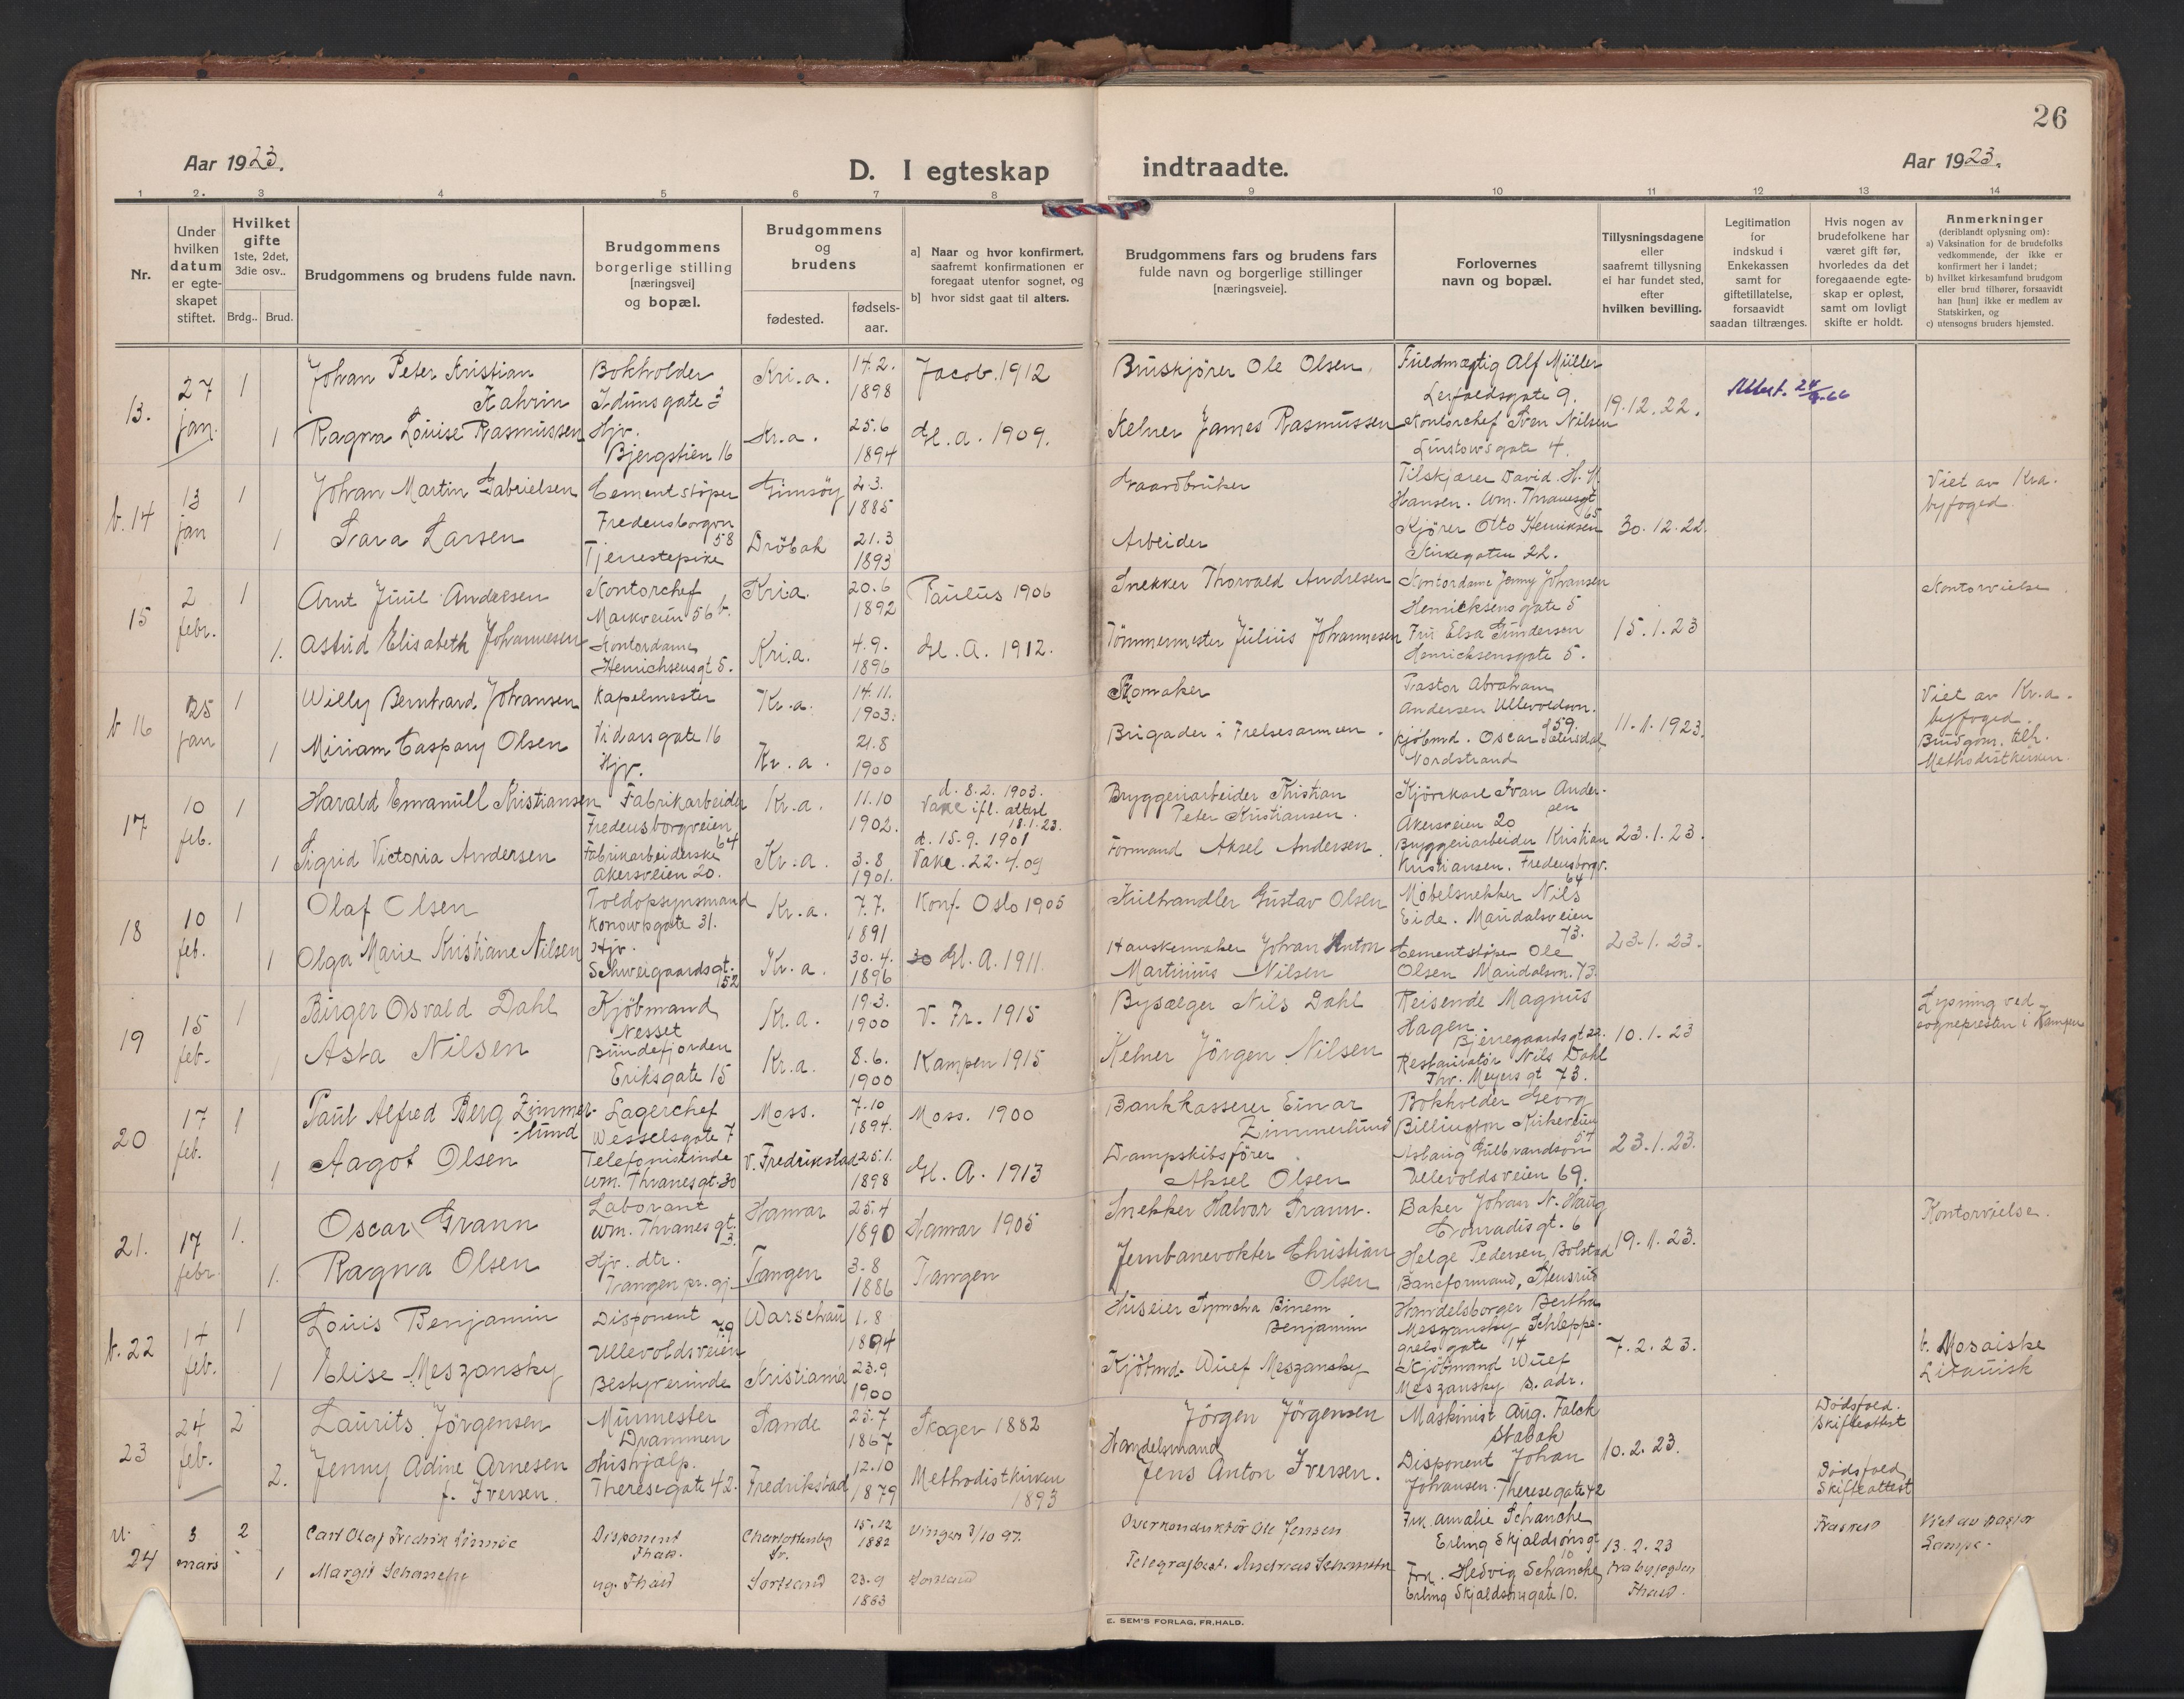 26
Aar 1923.
D. I egteskap indtraadte.
Aar 1923.
1 2. 3 4 5 6 7 8 9 10 11 12 13 14
Nr.
Under hvilken datum er egte-skapet stiftet.
Hvilket gifte
1ste, 2det, 3die osv..
Brdg.. Brud.
Brudgommens og brudens fulde navn.
Brudgommens
borgerlige stilling
[næringsvei]
og bopæl.
Brudgommens
og
brudens
fødested.
fødsels-
aar.
a] Naar og hvor konfirmert,
saafremt konfirmationen er
foregaat utenfor sognet, og
b] hvor sidst gaat til alters.
Brudgommens fars og brudens fars
fulde navn og borgerlige stillinger
[næringsveie].
Forlovernes
navn og bopæl.
Tillysningsdagene
eller
saafremt tillysning
ei har fundet sted,
efter
hvilken bevilling.
Legitimation
for
indskud i
Enkekassen
samt for
giftetillatelse,
forsaavidt
saadan tiltrænges.
Hvis nogen av
brudefolkene har
været gift før,
hvorledes da det
foregaaende egte-
skap er opløst,
samt om lovligt
skifte er holdt.
Anmerkninger
(deriblandt oplysning om):
a) Vaksination for de brudefolks
vedkommende, der ikke er
konfirmert her i landet;
b) hvilket kirkesamfund brudgom
eller brud tilhører, forsaavidt
han [hun] ikke er medlem av
Statskirken, og
c) utensogns bruders hjemsted.
13. 27 jan. 1
Johan Peter Kristian
Kahrin
Bokholder
Idunsgate 3
Kri.a.
14.2.
1898
Jacob. 1912
Bruskjører Ole Olsen.
Fuldmægtig Alf Müller
gate 9.
19.12.22.
Attest.
1
Ragna Louise Rasmussen
Hjv.
Bjergstien 16
Kr.a.
25.6
1894
Gl.a. 1909.
Kelner James Rasmussen
Kontorchef Sven Nilsen
Linstowsgate 4.
b.14 13 jan 1
Johan Martin Gabrielsen
Cementstøper
Fredensborgvn
58
Gimsøy
2.3.
1885
Gaardbruker
Tilskjærer David H.
Hansen. Wm. Thranesgt
65
30.12.22.
Viet av Kra.
byfoged.
1
Lara Larsen
Tjenestepike
Drøbak
21.3
1893
Arbeider
Kjører Otto Henriksen
Kirkegaten 22.
15 2 febr. 1
Arnt Juul Andresen
Kontorchef
Markveien 56 b.
Kria.
20.6
1892
Paulus 1906
Snekker Thorvald Andresen
Kontordame Jenny Johansen
Henrichsens gate 5
15.1.23
Kontorvielse
1.
Astrid Elisabeth Johannesen
Kontordame
Henrichsensgt 5.
Kri.a.
4.9.
1896
Gl.A. 1912.
Tømmermester Julius Johannesen
Fru Elsa Gundersen
Henrichsensgate 5.
b 16 25 jan 1
Willy Bernhard Johansen
Kapelmester
Vidarsgate 16
Kr.a.
14.11.
1903.
Skomaker
Pastor Abraham
Andersen Ullevoldsvn.
59.
11.1.1923.
Viet av Kr.a.
byfoged.
Brudgom. tilh.
Methodistkirken.
1
Miriam Caspary Olsen
Hjv.
Kr.a.
21.8
1900
Brigader i Frelsesarmeen.
Kjøbmd. Oscar Sætersdal
Nordstrand
17 10 feb. 1
Harald Emanuell Kristiansen
Fabrikarbeider
Fredensborgveien
64
Kr.a.
11.10
1902.
d. 8.2. 1903.
Vakc. ifl. attest
18.1.23.
Bryggeriarbeider Kristian
Peter Kristiansen.
Kjørekarl Ivan Ander-
sen
Akersveien 20
23.1.23.
1
Sigrid Victoria Andersen
Fabrikarbeiderske
Akersveien 20.
Kr.a.
3.8
1901.
d. 15.9. 1901
Vakc. 22.4.09
Formand Aksel Andersen.
Bryggeriarbeider Kristian
Kristiansen. Fredensborgv.
64
18 10 feb. 1
Olaf Olsen
Toldopsynsmand
Konowsgate 31.
Kr.a.
7.7.
1891
Konf. Oslo 1905
Kulhandler Gustav Olsen
Møbelsnekker Nils
Eide. Maridalsveien
73.
23.1.23.
1
Olga Marie Kristiane Nilsen
Hjv.
Schweigaardsgt.
52
Kr.a.
30.4.
1896
Gl. A. 1911.
Hanskemaker Johan Anton
Martinius Nilsen
Cementstøper Ole
Olsen Maridalsvn. 73.
19 15 feb. 1
Birger Osvald Dahl
Kjøbmand
Nesset
Bundefjorden
Kr.a.
19.3.
1900
V. Fr. 1915
Bysælger Nils Dahl
Reisende Magnus
Hagen
Bjerregaardsgt 22.
10.1.23
Lysning ved
sognepresten i Kampen
1
Asta Nilsen
Eriksgate 15
Kr.a.
8.6.
1900
Kampen 1915
Kelner Jørgen Nilsen
Restauratør Nils Dahl
Thv. Meyers gt 73.
20 17 feb. 1
Paul Alfred Berg Zimmer-
lund
Lagerchef
Wesselsgate 7
Moss.
7.10
1894.
Moss. 1900
Bankkasserer Einar
Zimmerlund
Bokholder Georg
Billington Kirkeveien
57
23.1.23.
1
Aagot Olsen
Telefonistinde
Wm. Thranesgt. 30
V. Fredrikstad
25.1.
1898
Gl. A. 1913
Dampskibsfører
Aksel Olsen
Aslaug Gulbrandson
Ullevoldsveien 69.
21. 17 febr. 1.
Oscar Grann
Laborant
Wm. Thranes gt.
3.
Hamar
25.4
1890
Hamar 1905
Snekker Halvor Grann.
Baker Johan N. Haug
Conradisgt. 6
19.1.23.
Kontorvielse.
1.
Ragna Olsen
Hjv. dtr.
Tangen
3.8
1886
Tangen
Jernbanevokter Christian
Olsen
Helge Pedersen, Bolstad
Baneformand, Stensrud
b.22 14 feb. 1
Louis Benjamin
Disponent
79
Ullevoldsveien
Warschau
1.8
1894
Huseier Symcha Binem
Benjamin
Handelsborger Bertha
Meszansky Schleppe-
grels gate 14
7.2.23.
b. Mosaiske
Litauisk
1
Elise Meszansky
Bestyrerinde
Kristiania
23.9
1900
Kjøbmd. Wulf Meszansky
Kjøbmand Wulf
Meszansky s. adr.
23 24 feb. 2
Laurits Jörgensen
Murmester
Drammen
Sande
25.7
1867
Skoger 1882
Jörgen Jörgensen
Handelsmand
Maskinist Aug. Falck
Stabæk
10.2.23.
Dødsfald.
Skifteattest
2.
Jenny Adine Arnesen
f. Iversen.
Hushjælp.
Theresegate 42.
Fredrikstad
12.10
1879
Methodistkirken
1893
Jens Anton Iversen.
Disponent Johan
Johansen. Theresegate 42
Dødsfald
Skifteattest
u. 24 3 mars 2
Carl Olaf Fredrik
Disponent
Charlottenberg
Sv.
15.12
1882
Vinger 3/10 97.
Overkonduktør Ole Jensen
Frk. Amalie Schanche
Erling Skjaldsønsgt
10
13.2.23
Viet av pastor
1
Margit Schanche
Sortland
23.9
1883
Sortland
Telegrafbest. Andreas Schanche
Frk. Hedvig Schanche
Erling Skjaldsønsgate 10.
E. SEM'S FORLAG, FR.HALD.